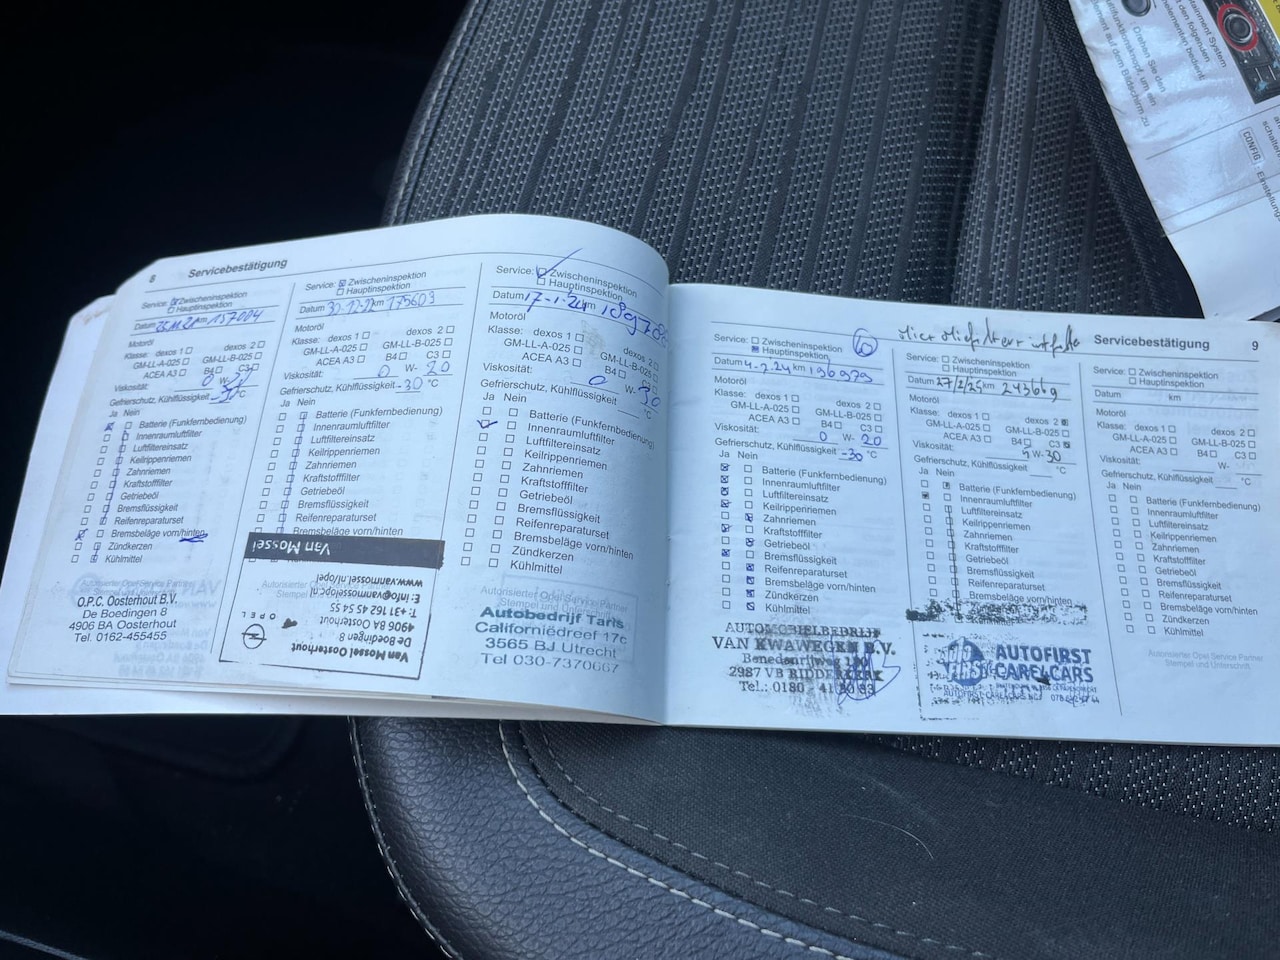 8 Servicebestätigung
Service: Zwischeninspektion
Hauptinspektion
Datum km 157004
Motoröl
Klasse: dexos 1 dexos 2
GM-LL-A-025 GM-LL-B-025
ACEA A3 B4 C3
Viskosität: 0 W-
Gefrierschutz, Kühlflüssigkeit °C
Ja Nein
Batterie (Funkfernbedienung)
Innenraumluftfilter
Luftfiltereinsatz
Keilrippenriemen
Zahnriemen
Kraftstofffilter
Getriebeöl
Bremsflüssigkeit
Reifenreparaturset
Bremsbeläge vorn/hinten
Zündkerzen
Kühlmittel
Autorisierter Opel Service Partner
O.P.C. Oosterhout B.V.
De Boedingen 8
4906 BA Oosterhout
Tel. 0162-455455
Service: Zwischeninspektion
Hauptinspektion
Datum km 175603
Motoröl
Klasse: dexos 1 dexos 2
GM-LL-A-025 GM-LL-B-025
ACEA A3 B4 C3
Viskosität: 0 W- 20
Gefrierschutz, Kühlflüssigkeit -30 °C
Ja Nein
Batterie (Funkfernbedienung)
Innenraumluftfilter
Luftfiltereinsatz
Keilrippenriemen
Zahnriemen
Kraftstofffilter
Getriebeöl
Bremsflüssigkeit
Reifenreparaturset
Bremsbeläge vorn/hinten
Van Mossel
Van Mossel Oosterhout
De Boedingen 8
4906 BA Oosterhout
T: +31 162 45 54 55
E: info@vanmosselopc.nl
www.vanmossel.nl/opel
OPEL
Service: Zwischeninspektion
Hauptinspektion
Datum 17-1-24 km 189788
Motoröl
Klasse: dexos 1 dexos 2
GM-LL-A-025 GM-LL-B-025
ACEA A3 B4 C3
Viskosität: 0 W- 30
Gefrierschutz, Kühlflüssigkeit °C
Ja Nein
Batterie (Funkfernbedienung)
Innenraumluftfilter
Luftfiltereinsatz
Keilrippenriemen
Zahnriemen
Kraftstofffilter
Getriebeöl
Bremsflüssigkeit
Reifenreparaturset
Bremsbeläge vorn/hinten
Zündkerzen
Kühlmittel
Autorisierter Opel Service Partner
Stempel und Unterschrift
Autobedrijf Taris
Californiëdreef 17c
3565 BJ Utrecht
Tel 030-7370667
Servicebestätigung 9
Service: Zwischeninspektion
Hauptinspektion
Datum 4-2.24 km 196979
Motoröl
Klasse: dexos 1 dexos 2
GM-LL-A-025 GM-LL-B-025
ACEA A3 B4 C3
Viskosität: 0 W- 20
Gefrierschutz, Kühlflüssigkeit -30 °C
Ja Nein
Batterie (Funkfernbedienung)
Innenraumluftfilter
Luftfiltereinsatz
Keilrippenriemen
Zahnriemen
Kraftstofffilter
Getriebeöl
Bremsflüssigkeit
Reifenreparaturset
Bremsbeläge vorn/hinten
Zündkerzen
Kühlmittel
AUTOMOBIELBEDRIJF
VAN KWAWEGEN B.V.
Benedenrijweg
2987 VB RIDDERKERK
Tel.: 0180 - 41
Service: Zwischeninspektion
Hauptinspektion
Datum km
Motoröl
Klasse: dexos 1 dexos 2
GM-LL-A-025 GM-LL-B-025
ACEA A3 B4 C3
Viskosität: W-30
Gefrierschutz, Kühlflüssigkeit °C
Ja Nein
Batterie (Funkfernbedienung)
Innenraumluftfilter
Luftfiltereinsatz
Keilrippenriemen
Zahnriemen
Kraftstofffilter
Getriebeöl
Bremsflüssigkeit
Reifenreparaturset
Bremsbeläge vorn/hinten
Zündkerzen
AUTOFIRST
CARE4CARS
Service: Zwischeninspektion
Hauptinspektion
Datum km
Motoröl
Klasse: dexos 1 dexos 2
GM-LL-A-025 GM-LL-B-025
ACEA A3 B4 C3
Viskosität: W-
Gefrierschutz, Kühlflüssigkeit °C
Ja Nein
Batterie (Funkfernbedienung)
Innenraumluftfilter
Luftfiltereinsatz
Keilrippenriemen
Zahnriemen
Kraftstofffilter
Getriebeöl
Bremsflüssigkeit
Reifenreparaturset
Bremsbeläge vorn/hinten
Zündkerzen
Kühlmittel
Autorisierter Opel Service Partner
Stempel und Unterschrift
tainment System
den folgenden
elementen bedient
Drehen Sie den
ltifunktionsknopf, um ein
ement auf dem Bildschirm zu
CONFIG : Einstellungen